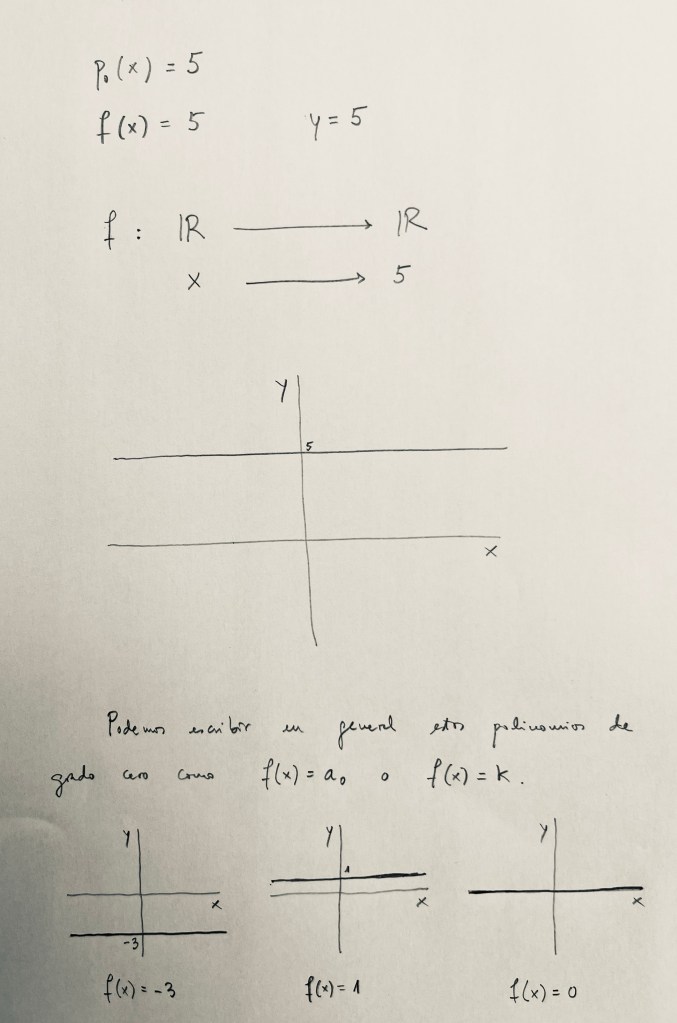 p₀(x) = 5
f(x) = 5 y = 5
f : ℝ ⟶ ℝ
x ⟶ 5
y
5
x
Podemos escribir en general estos polinomios de
grado cero como f(x) = a₀ o f(x) = k.
y y y
1
x x x
-3
f(x) = -3 f(x) = 1 f(x) = 0